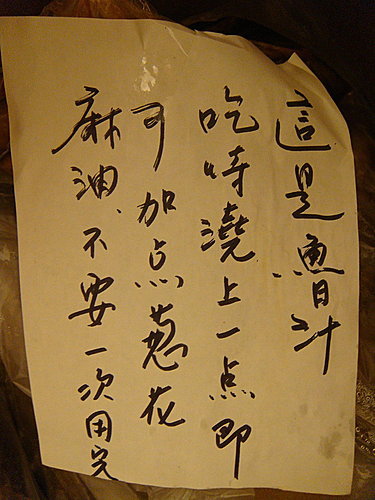 這是魯汁
吃時澆上一点即
可加点葱花
麻油、不要一次用完